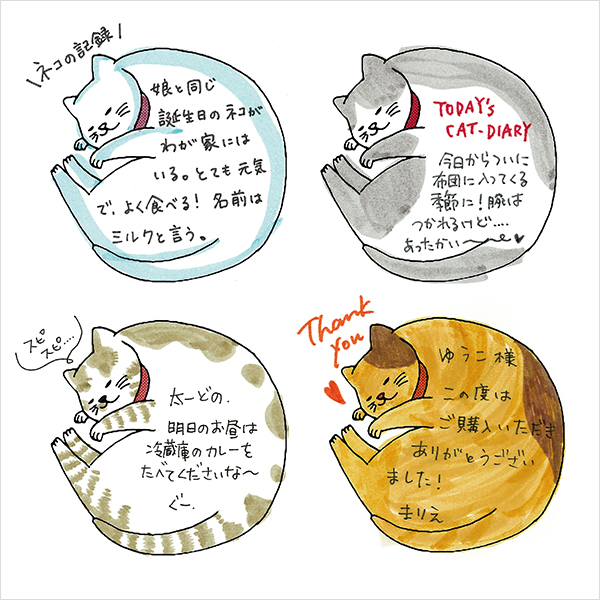 ネコの記録
娘と同じ
誕生日のネコが
わが家には
いる。とても元気
で、よく食べる！名前は
ミルクと言う。
TODAY'S
CAT-DIARY
今日からついに
布団に入ってくる
季節に！腕は
つかれるけど....
あったかい〜
スピ
スピ....
太一どの.
明日のお昼は
冷蔵庫のカレーを
たべてくださいな〜
ぐー.
Thank
you
ゆうこ様
この度は
ご購入いただき
ありがとうござい
ました！
まりえ